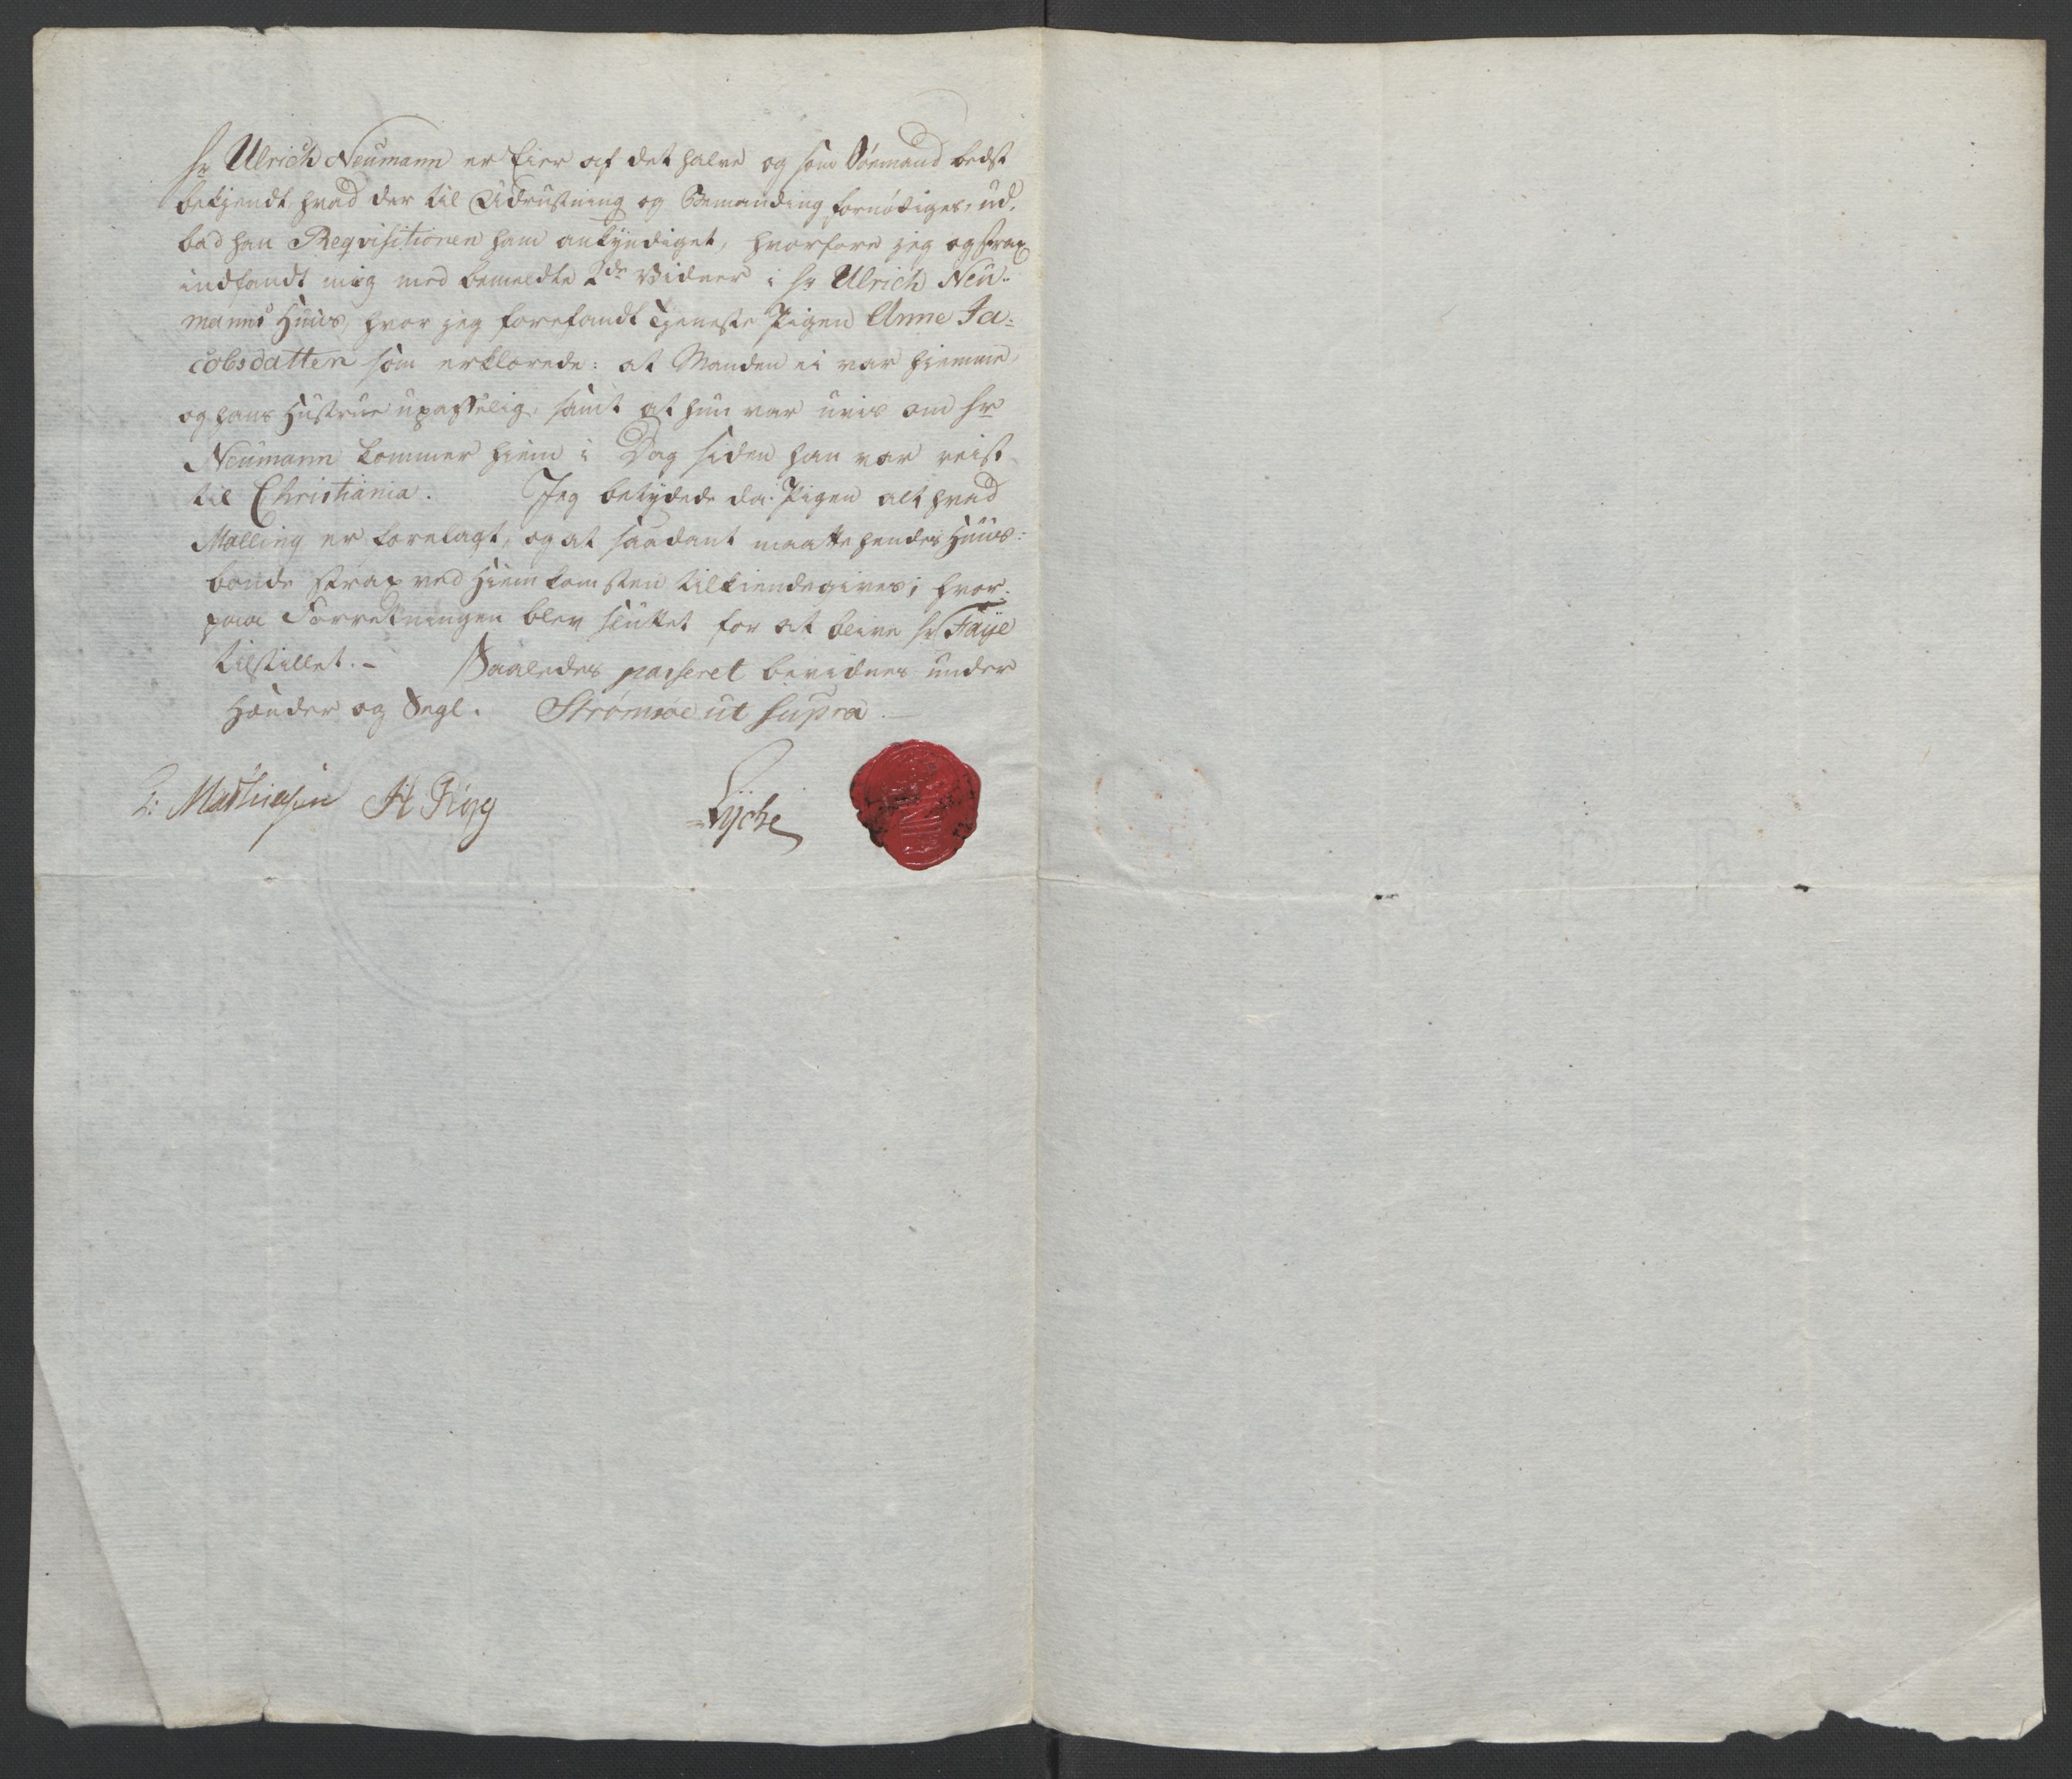 Hr Ulrich Neumann er Eier af det halve og som Søemand bedst
bekjendt hvad der til Udrustning og Bemanding fornødiges, ud-
bad han Reqvisitionen ham ankyndiget, hvorfore jeg og strax
indfandt mig med bemeldte 2de Vidner i Hr Ulrich Neu-
manns Huus, hvor jeg forefandt Tjeneste Pigen Anne Ja-
cobsdatter som erklærede: at Manden ei var hiemme,
og hans Hustrue upasselig, samt at hun var uvis om Hr
Neumann kommer hiem i Dag siden han var reist
til Christiania. Jeg betydede da Pigen alt hvad
Malling er forelagt, og at saadant maatte hendes Huus-
bonde strax ved Hiemkomsten tilkiendegives; hvor-
paa Forretningen blev sluttet for at blive Hr Faÿe
tilstillet. – Saaledes passeret bevidnes under
Hænder og Segl. Strømsøe ut supra. –
Mathiesen H Fiøg
Lÿche